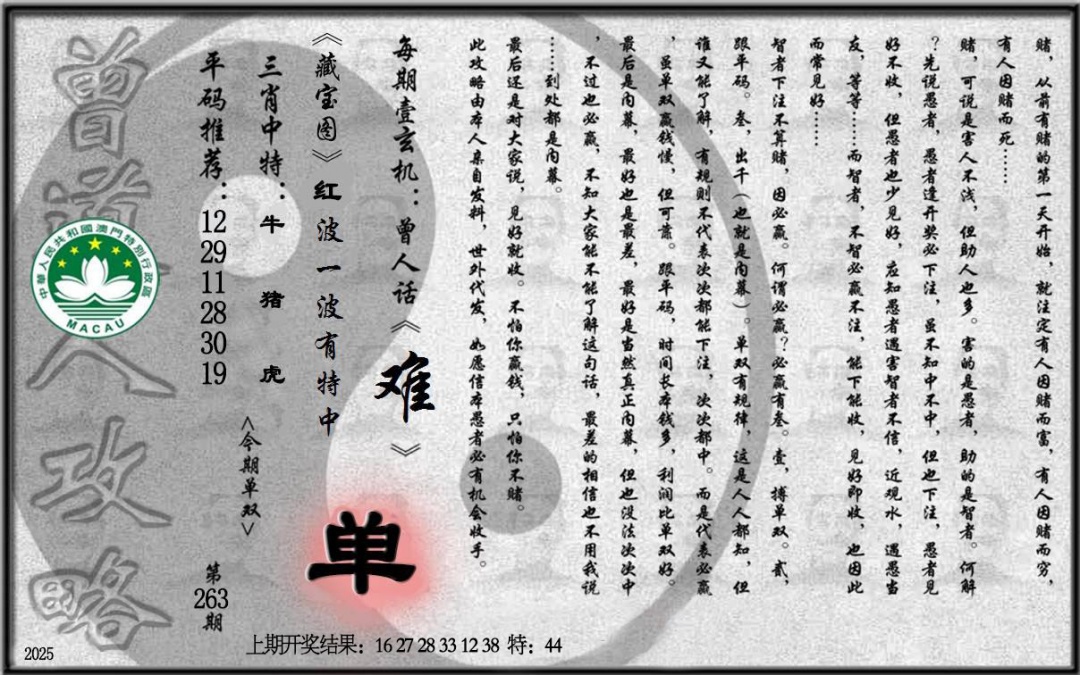 赌，从前有赌的第一天开始，就注定有人因赌而富，有人因赌而穷，
有人因赌而死……
赌，可说是害人不浅，但助人也多。害的是愚者，助的是智者。何解
？先说愚者，愚者逢开奖必下注，虽不知中不中，但也下注，愚者见
好不收，但愚者也少见好，应知愚者遇害智者不信，近观水，遇愚当
友，等等……而智者，不智必赢不注，能下能收，见好即收，也因此
而常见好……
智者下注不算赌，因必赢。何谓必赢？必赢有叁。壹，搏单双。贰，
跟平码。叁，出千（也就是内幕）。单双有规律，这是人人都知，但
谁又能了解，有规则不代表次次都能下注，次次都中。而是代表必赢
，虽单双赢钱慢，但可靠。跟平码，时间长本钱多，利润比单双好。
最后是内幕，最好也是最差，最好是当然真正内幕，但也没法次次中
，不过也必赢，不知大家能不能了解这句话，最差的相信也不用我说
……到处都是内幕。
最后还是对大家说，见好就收。不怕你赢钱，只怕你不赌。
此攻略由本人亲自发料，世外代发，如愿信本愚者必有机会收手。
每期壹玄机：曾人话《难》
《藏宝图》红波一波有特中
单
三肖中特：牛 猪 虎
<今期单双>
平码推荐：12 29 11 28 30 19
第263期
曾道人攻略
中華人民共和國澳門特別行政區
MACAU
上期开奖结果：16 27 28 33 12 38 特：44
2025